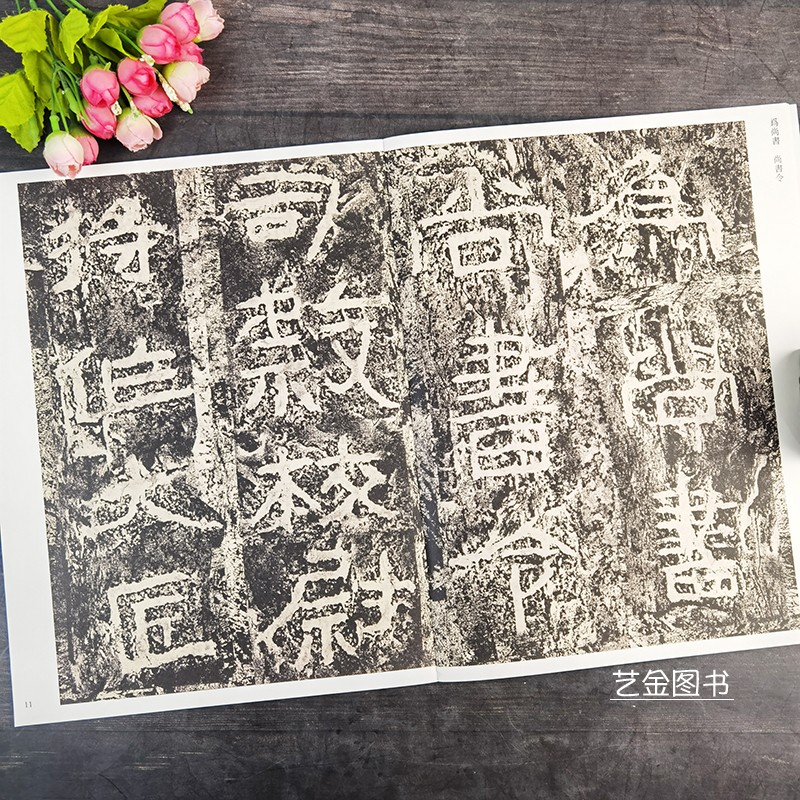 爲尚書 尚書令
爲尚書
尚書令
司隸校尉
將作大匠
11
艺金图书